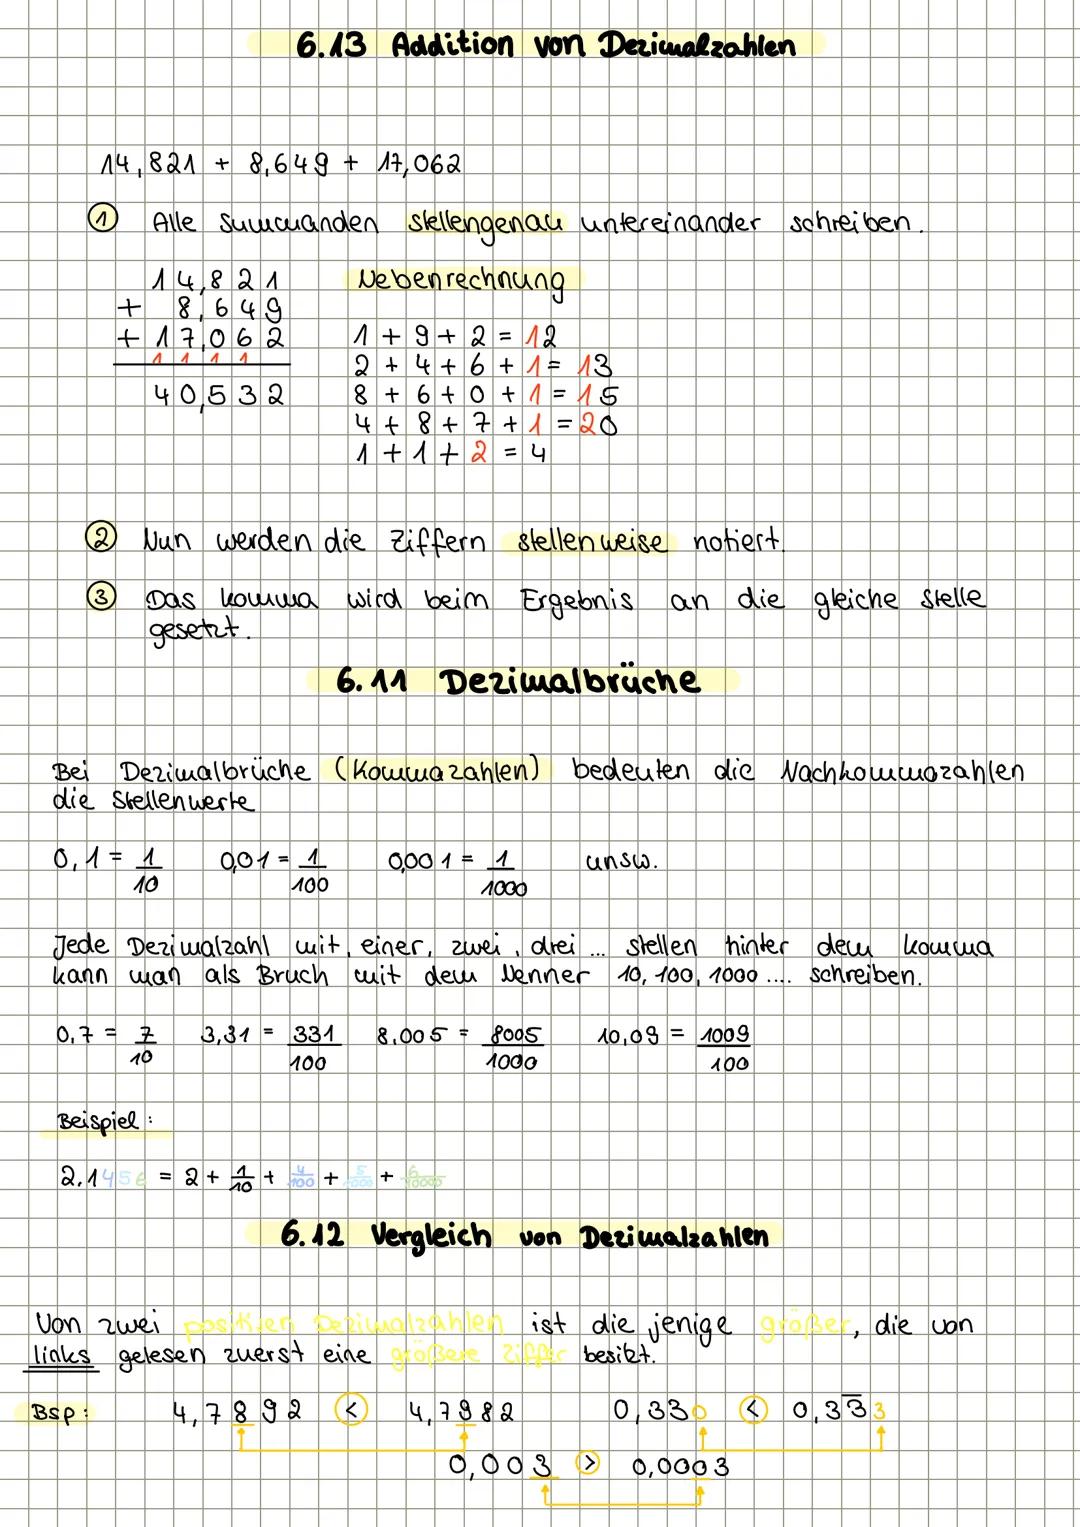 6.13 Addition von Dezimalzahlen
14,821 + 8,649 + 17,062
① Alle Summanden stellengenau untereinander schreiben.
14,821 Nebenrechnung
+ 8,649
+ 17,062 1 + 9 + 2 = 12
1 1 1 1 2 + 4 + 6 + 1 = 13
40,532 8 + 6 + 0 + 1 = 15
4 + 8 + 7 + 1 = 20
1 + 1 + 2 = 4
② Nun werden die Ziffern stellenweise notiert.
③ Das Komma wird beim Ergebnis an die gleiche Stelle
gesetzt.
6.11 Dezimalbrüche
Bei Dezimalbrüche (Kommazahlen) bedeuten die Nachkommazahlen
die Stellenwerte
0,1 = 1/10 0,01 = 1/100 0,001 = 1/1000 unsw.
Jede Dezimalzahl mit, einer, zwei, drei ... Stellen hinter dem Komma
kann man als Bruch mit dem Nenner 10, 100, 1000 .... schreiben.
0,7 = 7/10 3,31 = 331/100 8,005 = 8005/1000 10,09 = 1009/100
Beispiel:
2,1456 = 2 + 1/10 + 4/100 + 5/1000 + 6/10000
6.12 Vergleich von Dezimalzahlen
Von zwei positiven Dezimalzahlen ist die jenige größer, die von
links gelesen zuerst eine größere Ziffer besitzt.
Bsp: 4,7892 < 4,7982 0,330 < 0,33̅3
0,003 > 0,0003